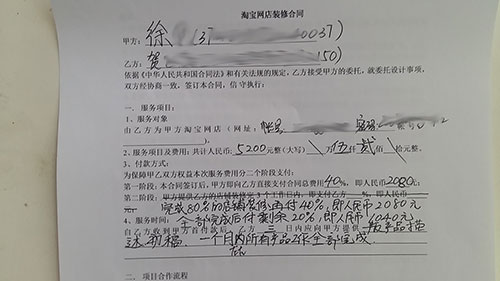 淘宝网店装修合同
甲方：徐 (37 0037)
乙方：贺 150)
依据《中华人民共和国合同法》和有关法规的规定，乙方接受甲方的委托，就委托设计事项，
双方经协商一致，签订本合同，信守执行：
一．服务项目：
1、服务对象
由乙方为甲方淘宝网店（网址：
2、服务项目及费用：共计人民币：5200元整（大写） \ 万伍仟贰佰 \ 拾元整.
3、付款方式：
为保障甲乙双方权益本次服务费用分二个阶段支付：
第一阶段：本合同签订后，甲方即向乙方直接支付合同总费用40%，即人民币2080元；
第二阶段：甲方提供乙方的店铺装修至3个工作日内，即支付乙方
完成80%的店铺装修再付40%，即人民币2080元
全部完成后付剩余20%，即人民币1040元
4、服务时间：
自乙方收到甲方首付款后 6 方 三 日内应向甲方提供
一个月内所有产品工作全部完成
二．项目合作流程